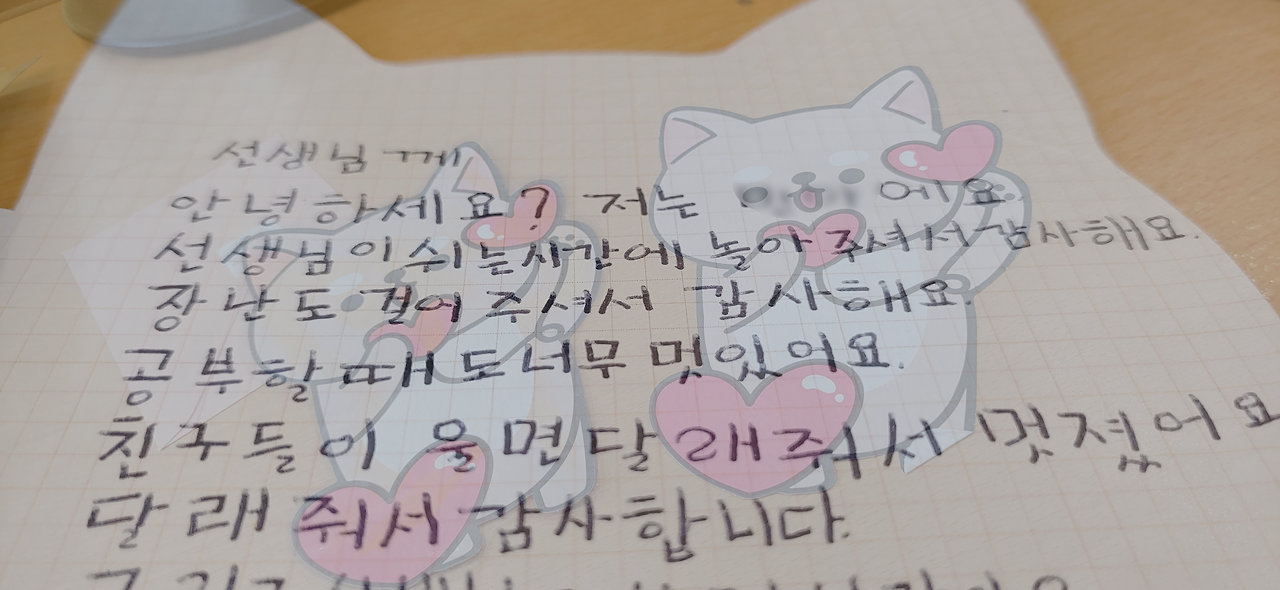 선생님께
안녕하세요? 저는 에요
선생님이 쉬는시간에 놀아 주셔서 감사해요.
장난도 걸어 주셔서 감사해요.
공부할 때도 너무 멋있어요.
친구들이 울면 달래줘서 멋졌어요
달래 줘서 감사합니다.